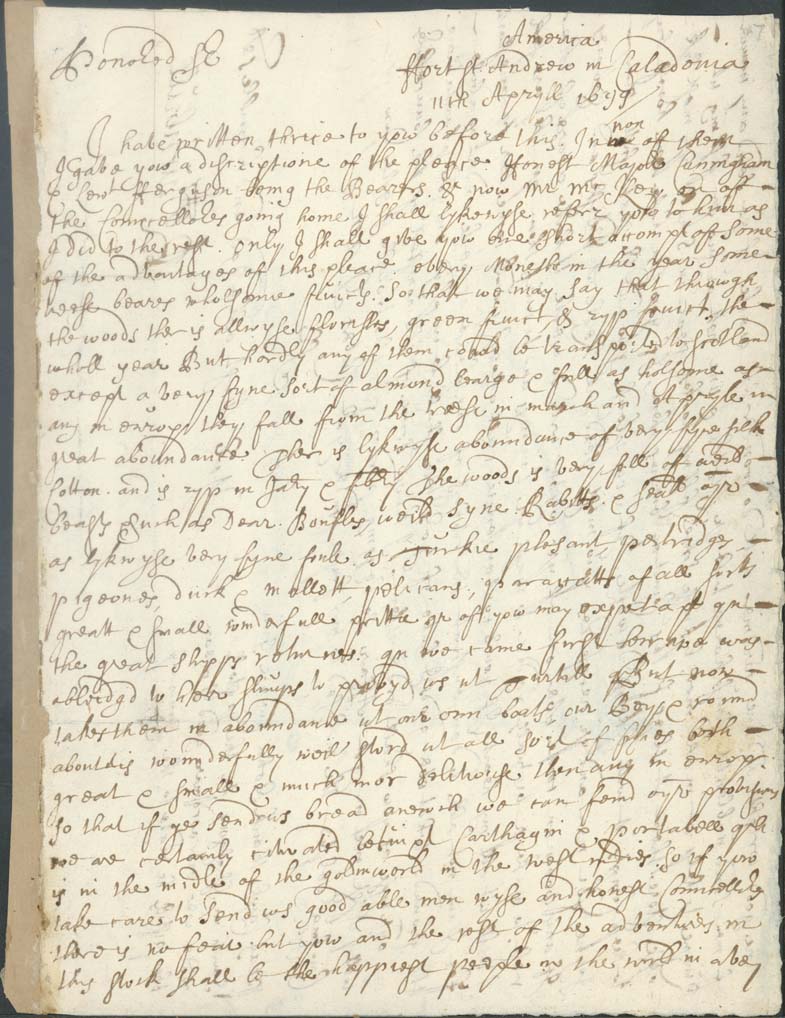 America
Honored Sr
ffort St Andrew in Caladonia
11th Apryll 1699
I have written thrice to yow before this. In non of them
I gave yow a discriptione of the pleace Honest Major Cuningham
& Lew fferguson being the Bearers. & now Mr Mc Key on off
the Councellores going home I shall lykewyse referr yow to him as
I did to the rest. only I shall give yow ane short accompt off some
of the advantages of this pleace. every Moneth in the year some
treese beares wholsome fruicts. So that we may say that through
the woods ther is allwyse florishes, green fruict, & ryp fruict, the
wholl year But hardly any of them could be transported to Scotland
except a very fyne sort of almond large & full as holsome as
any in europ they fall from the treese in march and Apryle in
great aboundance. Ther is lykwyse aboundance of very fyne silk
Cotton. and is ryp in Jary & ffebry The woods is very full of weild
beasts Such as Dear. weild Syne. Rabitts. &
as lykwyse very fyne foule. as Turkie plesant, pertridges
pigeones, duck & mollett, pelicans, parawatts of all sorts
greatt & small wonderfull prittie qr off yow may expect a pt qn
the great shipps returnes. qn we came first heir we was
abliedgd to heir sloups to provyd us wt turtill But now
takes them in aboundance wt our own boats, our Bey & round
about is wounderfully weill stord wt all sort of fishes both
great & small & much mor delitiouse then any in europ.
So that if ye send us bread anewch we can fend oyr provisions
we are certainly cituated betwixt Carthagin & portabell qch
is in the midle of the gold world in the west indies. So if yow
take care to send us good able men wyse and honest Councellors
there is no fear but yow and the rest of the adventures in
this stock shall be the happiest people in the world in a very